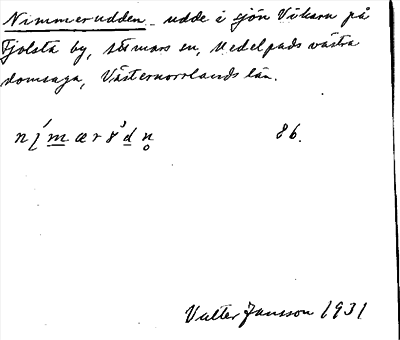 Nimmerudden - udde i sjön Vikarn på
Fjolsta by, Stömars sn, Medelpads västra
domsaga, Västernorrlands län.
86.
Valter Jansson 1931